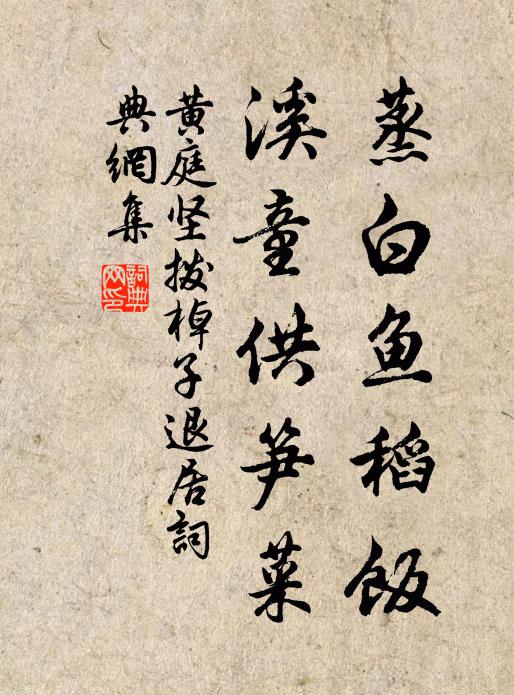 蒸白鱼稻饭
溪童供笋菜
黄庭坚拨棹子退居詞
典網集
詞典
网印